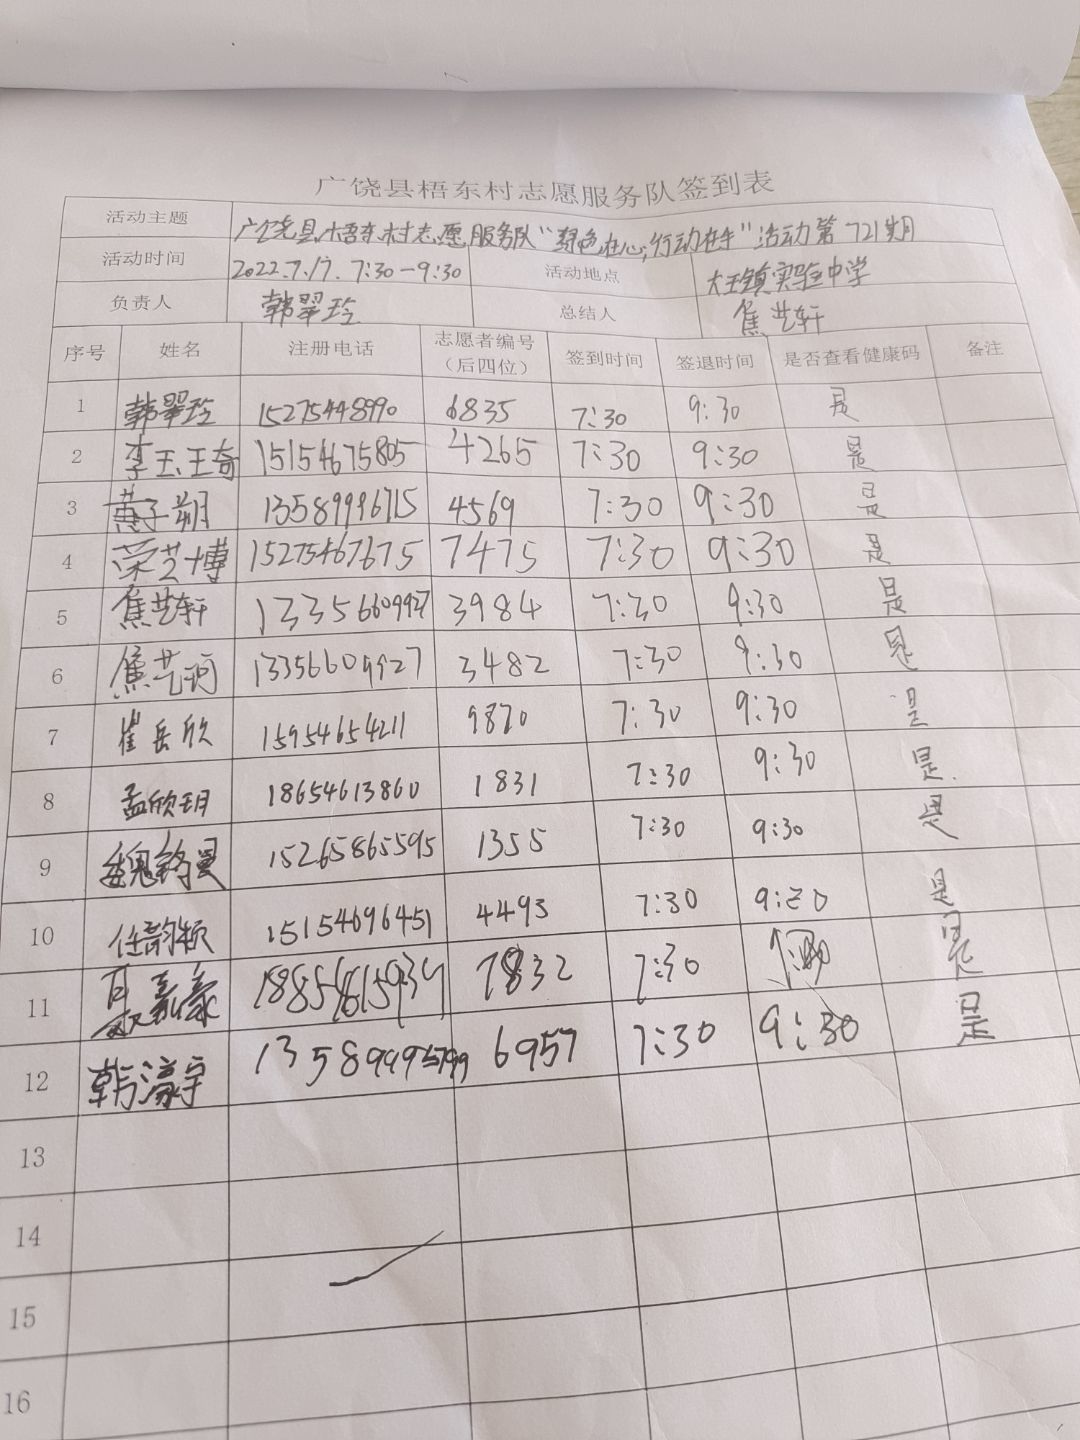 广饶县梧东村志愿服务队签到表
活动主题 广饶县梧东村志愿服务队“绿色在心,行动在手”活动第721期
活动时间 2022.7.17. 7:30-9:30 活动地点 大王镇实验中学
负责人 韩翠玲 总结人 焦艺轩
序号 姓名 注册电话 志愿者编号(后四位) 签到时间 签退时间 是否查看健康码 备注
1 韩翠玲 15275448990 6835 7:30 9:30 是
2 李玉琦 15154675805 4265 7:30 9:30 是
3 黄子朔 13589996715 4569 7:30 9:30 是
4 荣艺博 15275467675 7475 7:30 9:30 是
5 焦艺轩 13356609927 3984 7:30 9:30 是
6 焦艺珂 13356609927 3482 7:30 9:30 是
7 崔岳欣 15954654211 9870 7:30 9:30 是
8 孟欣玥 18654613860 1831 7:30 9:30 是
9 魏 15265865595 1355 7:30 9:30 是
10 任韵颖 15154696451 4493 7:30 9:30 是
11 聂嘉豪 7832 7:30 是
12 韩濠宇 6957 7:30 9:30 是
13
14
15
16